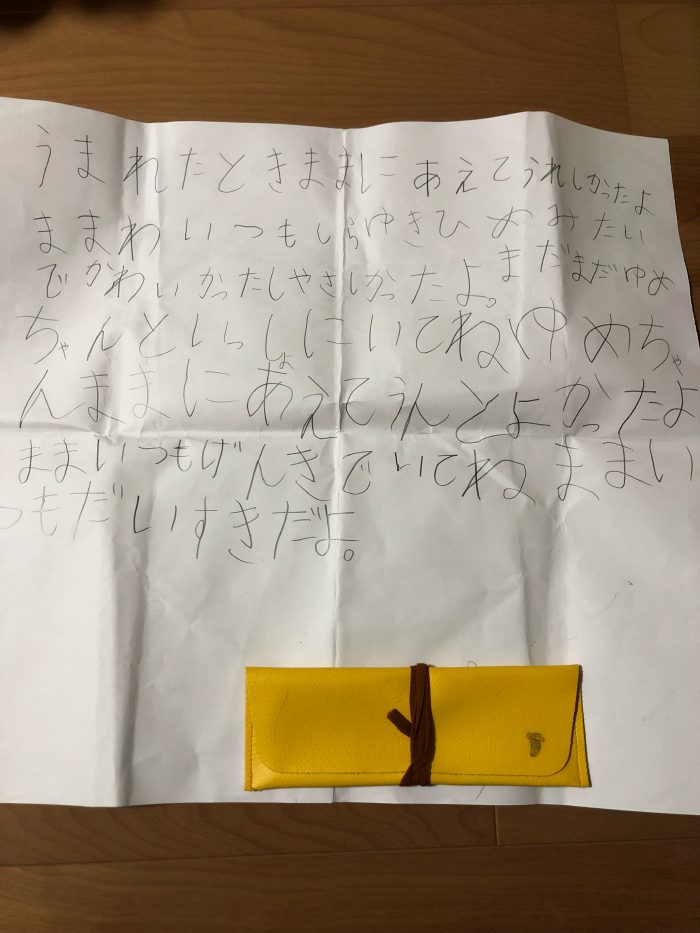 うまれたときままにあえてうれしかったよ
ままわいつもしらゆきひめみたい
でかわいかったしやさしかったよ。まだまだゆめ
ちゃんといっしょにいてねゆめちゃ
んままにあえてうんとよかったよ
ままいつもげんきでいてねままい
つもだいすきだよ。